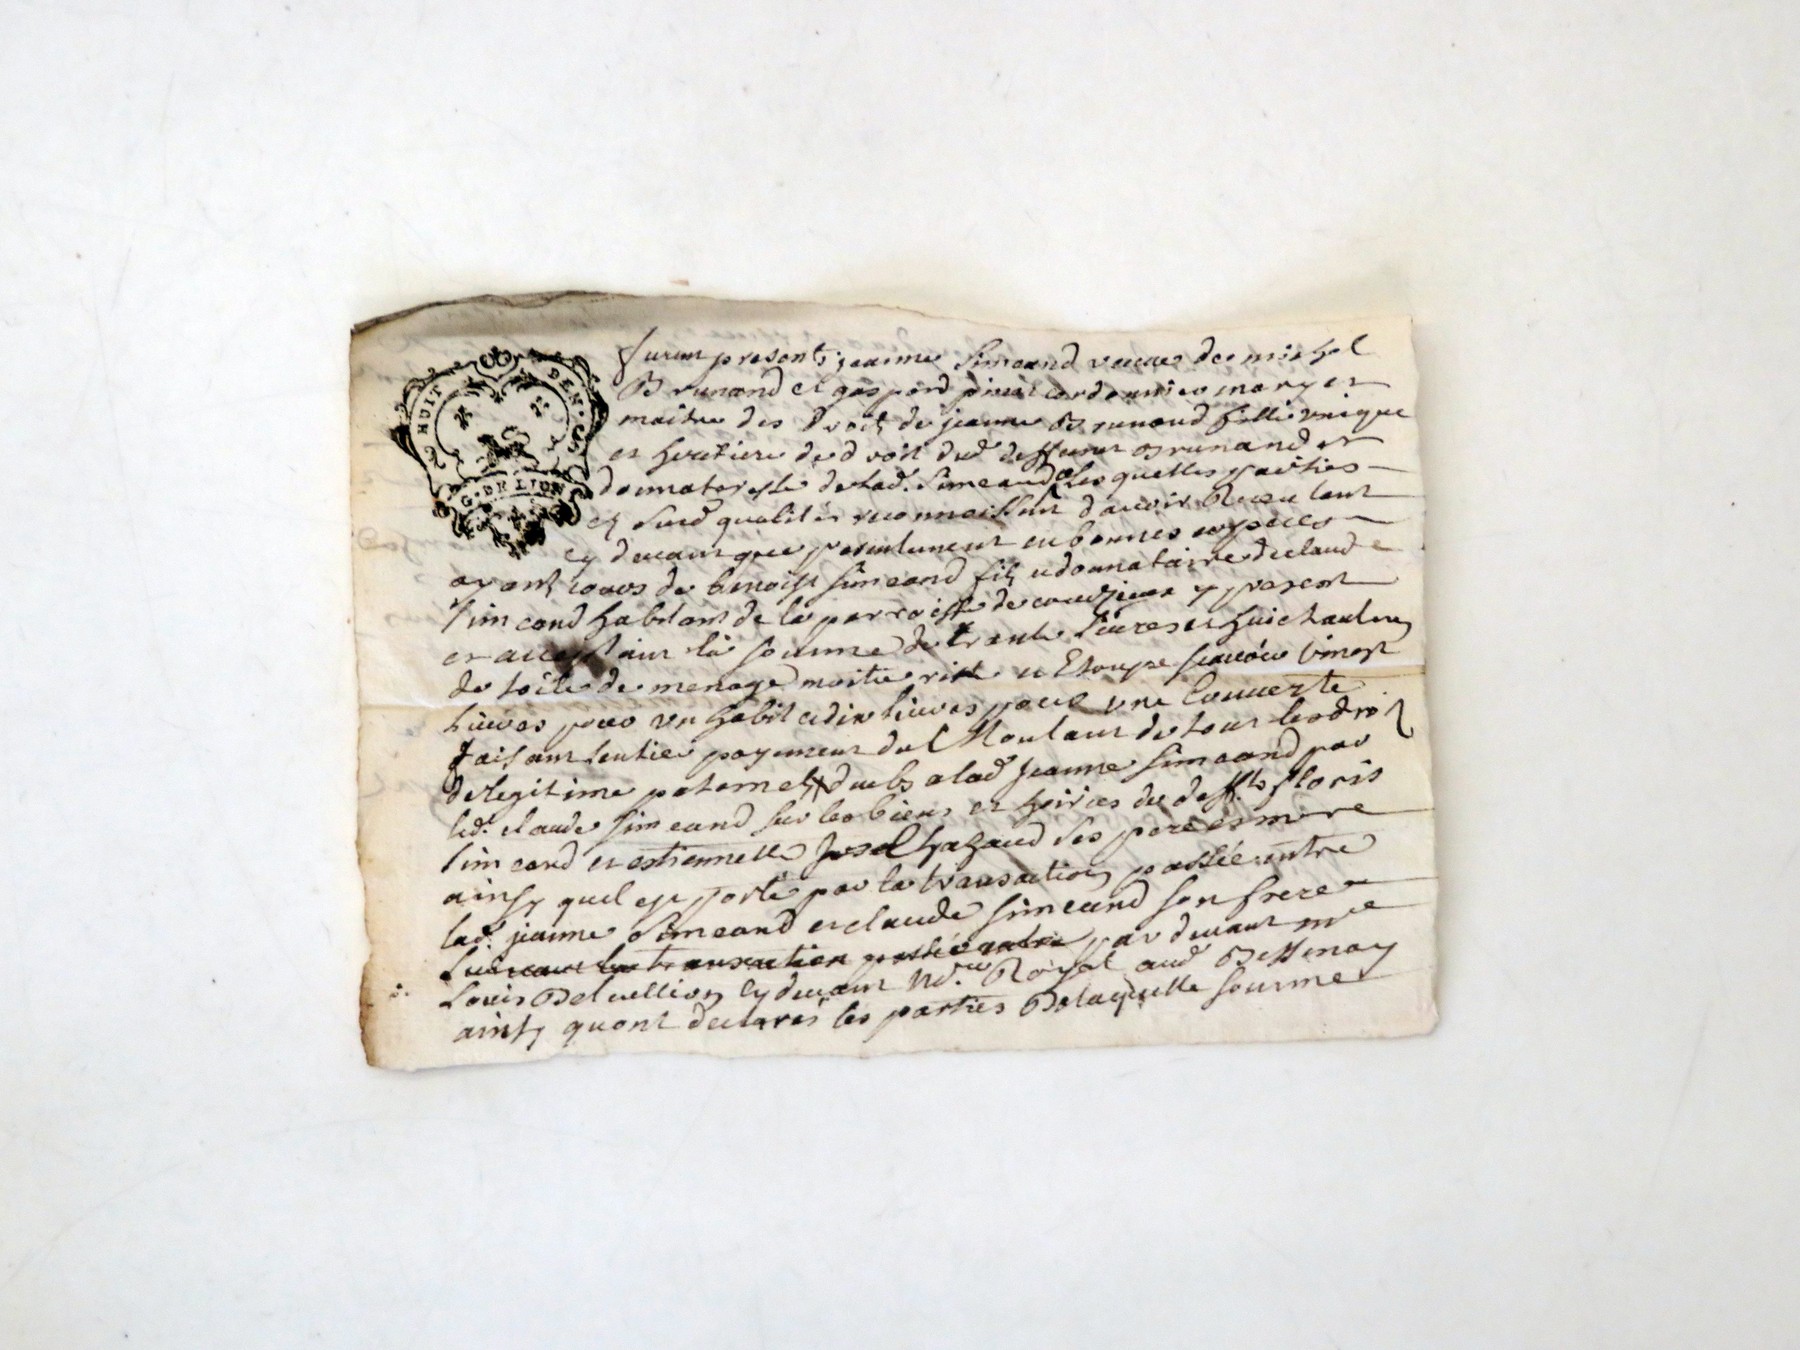 HUIT DEN·RS
G·DE LION
furent presents jeanne Simeand veuve de michel
Brunand et gaspard cordonnier mary et
maitre des Droits de jeanne Brunand fille unique
et heritiere de droit dud deffunt Brunand et
donnataresse de lad. Simeand lesquelles parties
et susd qualités reconnoissent d'avoir Receu tant
cy devant que presentement en bonnes especes
ayant cours de benoist Simeand fils et donnataire de claude
Simeand habitant de la parroisse de y present
et acceptant la somme de trante livres et huict aulnes
de toile de menage moitie rite et Etoupe scavoir vingt
livres pour un habit et dix livres pour une Couverte
faisant lentier payement de tous les droits
de legitime paternels deubs a lad jeanne Simeand par
led. claude Simeand sur les biens et hoiries de deffts floris
Simeand et estiennette ses pere et mere
ainsy quil est porté par la transaction passée entre
lad. jeanne Simeand et claude Simeand son frere
la transaction passée entre par devant me
Louis cy devant Nore Royal aud Bessenay
ainsy quont declarés les parties De laquelle somme